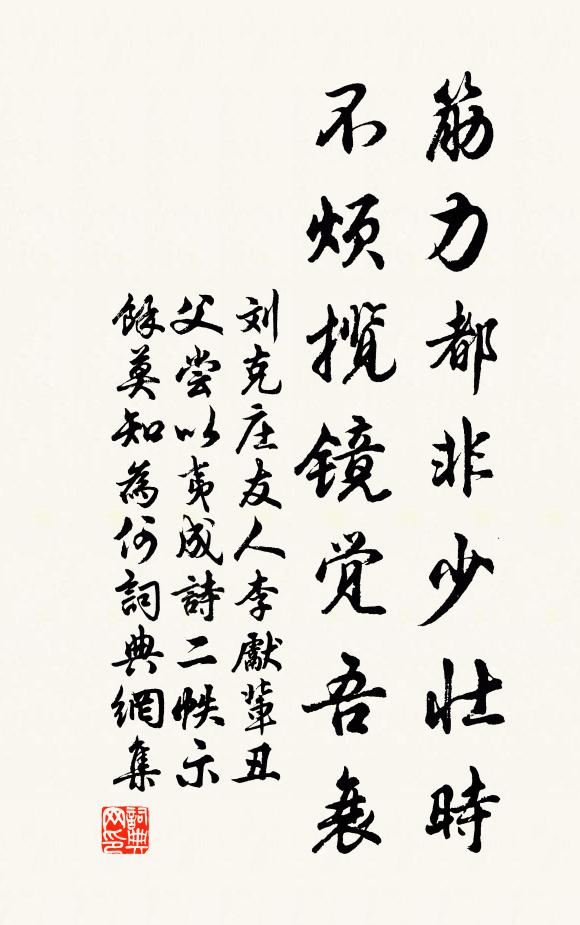 筋力都非少壮時
不烦揽镜觉吾衰
刘克庄友人李獻軰丑
父尝以夷成詩二帙示
餘莫知為何詞典網集
詞典网印